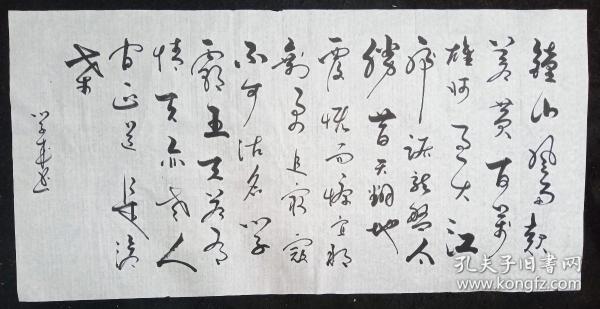 鐘山风雨起
苍黄百万
雄师过大江
虎踞龙盘今
胜昔天翻地
覆慨而慷宜将
剩勇追穷寇
不可沽名学
霸王天若有
情天亦老人
间正道是沧
桑
孔夫子旧书网
www.kongfz.com